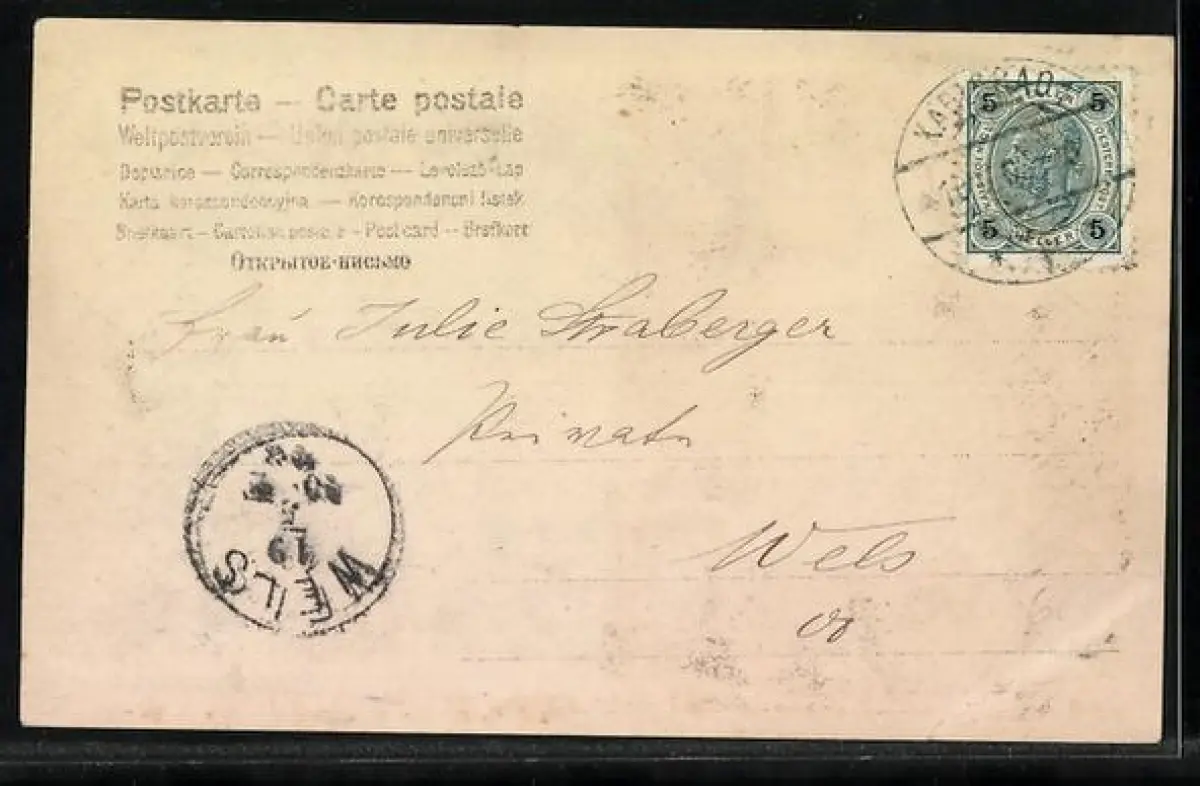 Postkarte — Carte postale
Weltpostverein — Union postale universelle
Dopisnice — Correspondenzkarte — Levelező-Lap
Karta korespondencyjna — Korespondencni listek
Briefkaart – Cartolina postale – Post card – Brefkort
Открытое письмо
Frau Julie Straberger
Private
Wels
5 5
5 HELLER 5
WELS